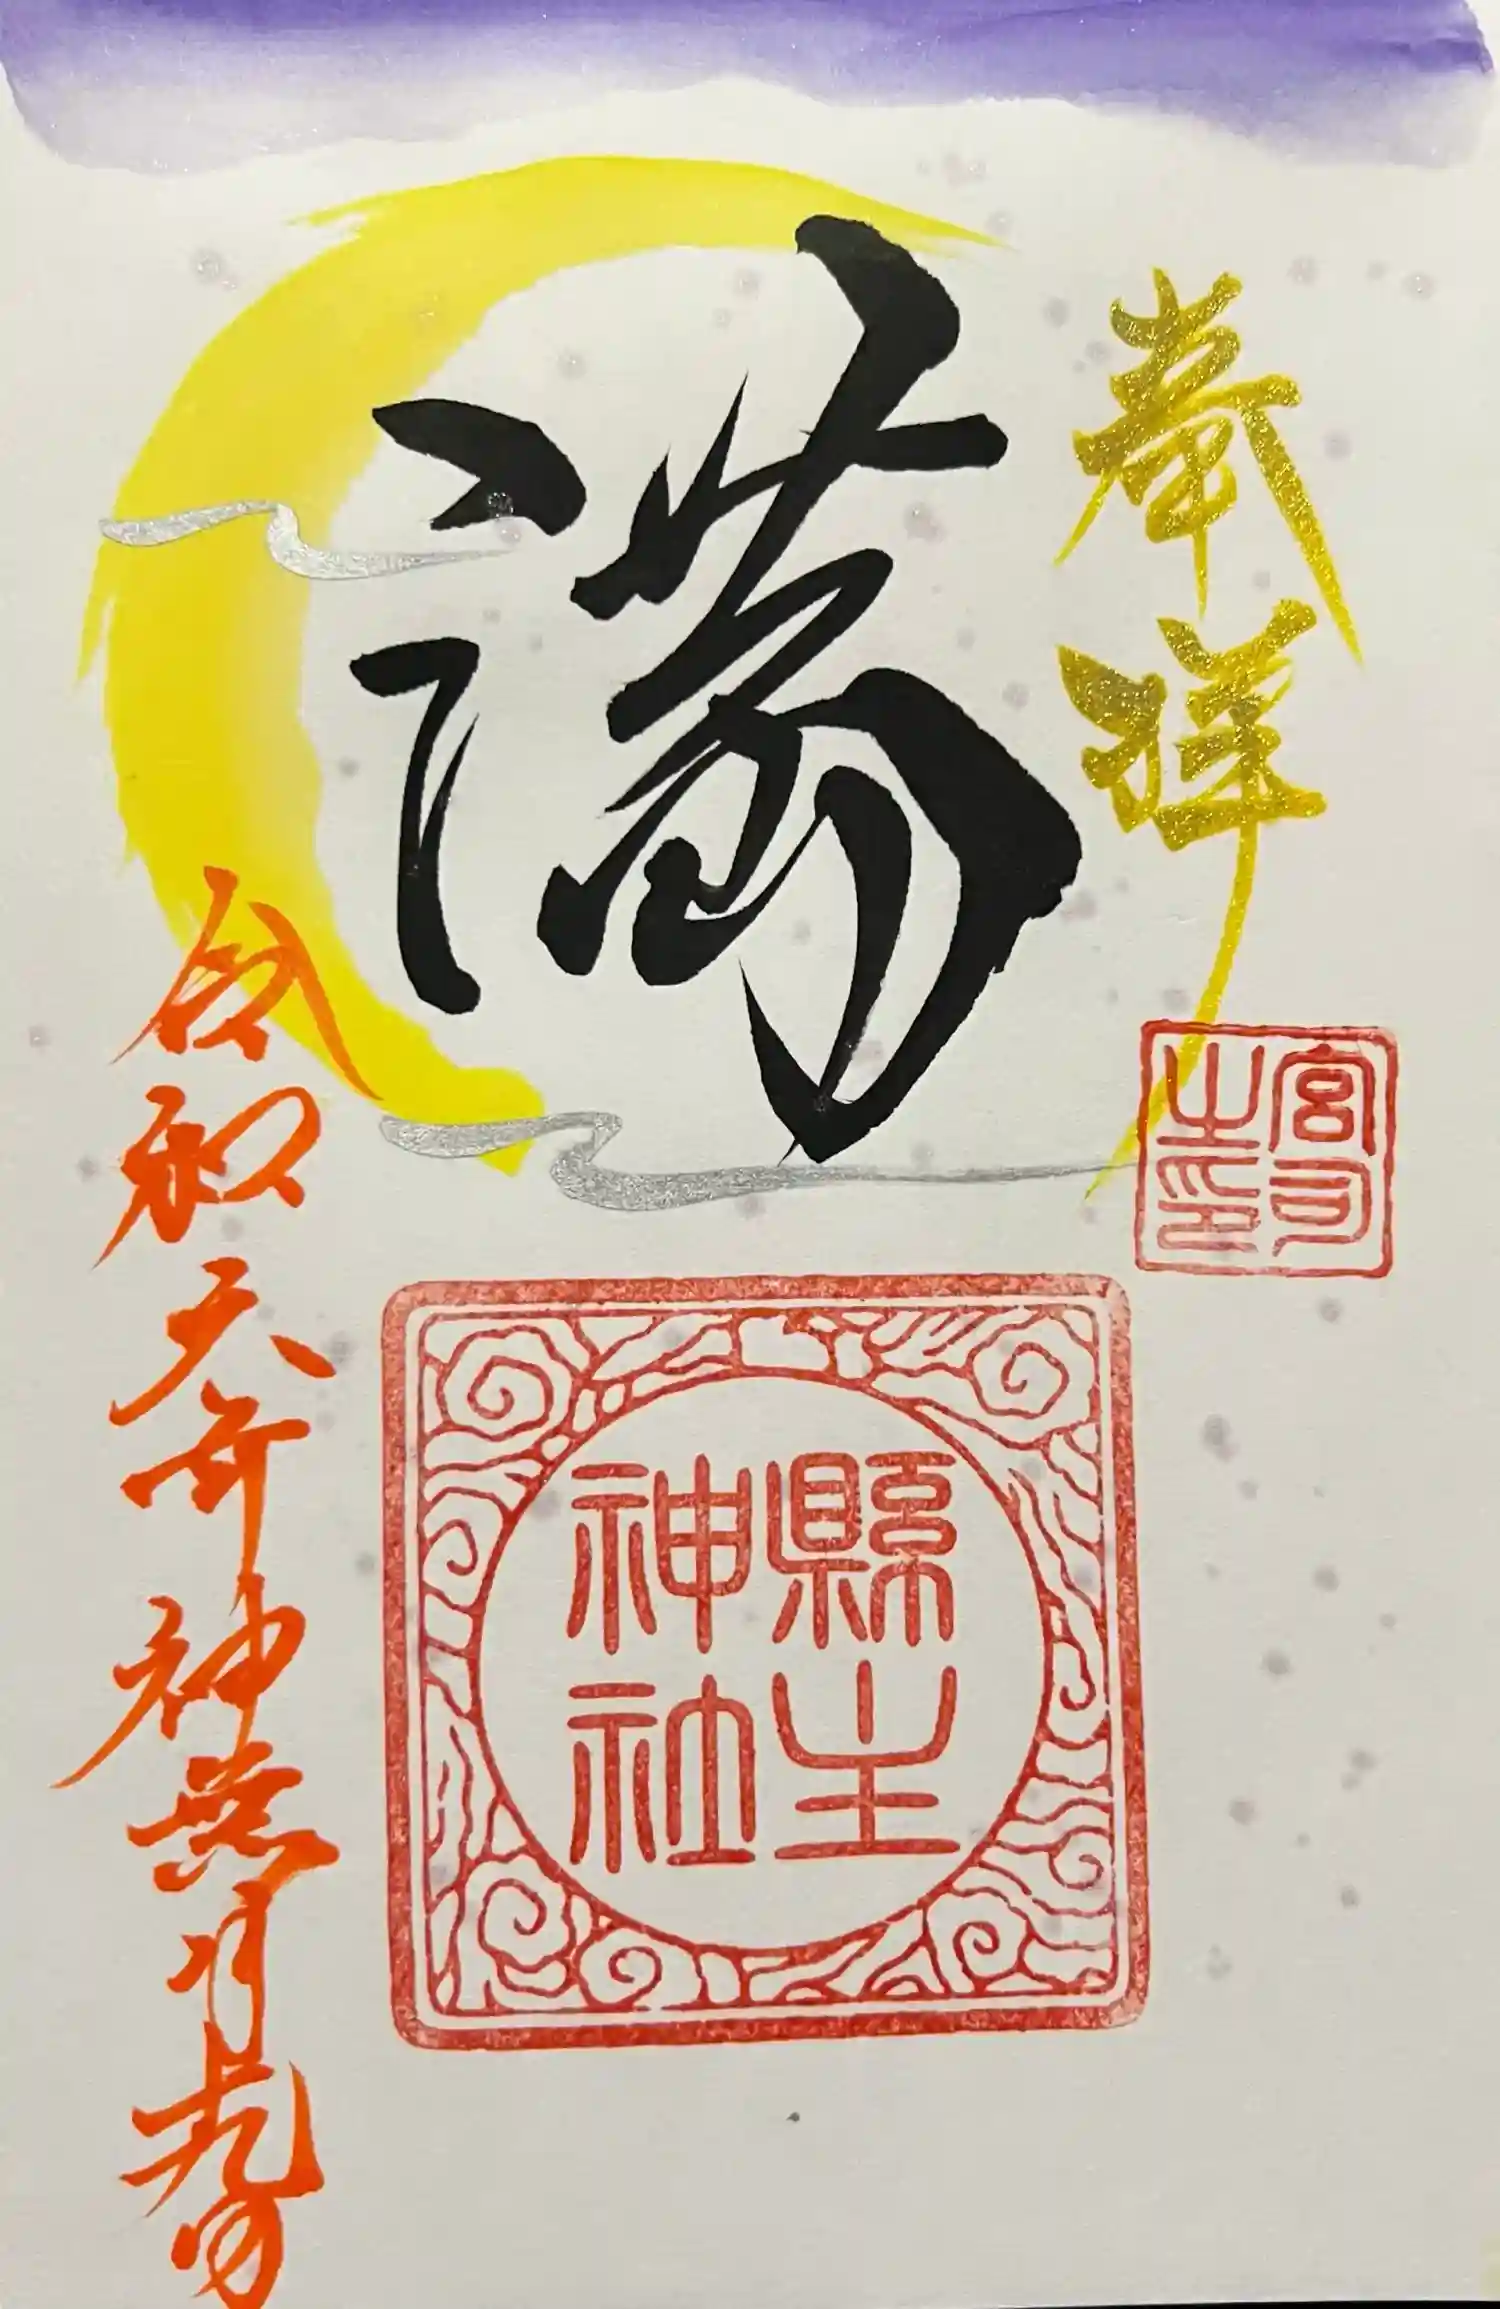 奉拝
宮司之印
満
縣主神社
令和六年神無月十九日